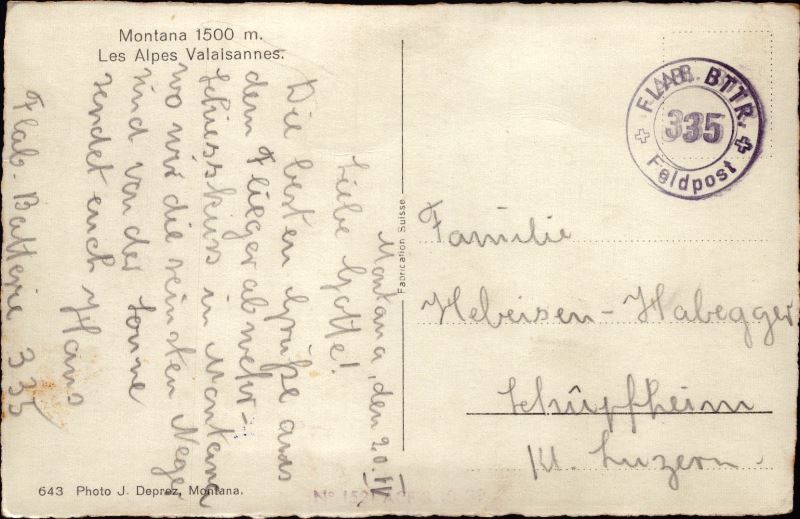 Montana 1500 m.
Les Alpes Valaisannes.
FLAB. BTTR.
335
Feldpost
Montana, den 20. VI
Liebe Gotte!
Die besten Grüße aus
dem Fliegerabwehr-
schiesskurs in Montana
wo wir die reinsten Neger
sind von der Sonne
sendet euch Hans
Flab-Batterie 335
Fabrication Suisse.
Familie
Hebeisen-Habegger
Schüpfheim
Kt. Luzern.
643 Photo J. Deprez, Montana.